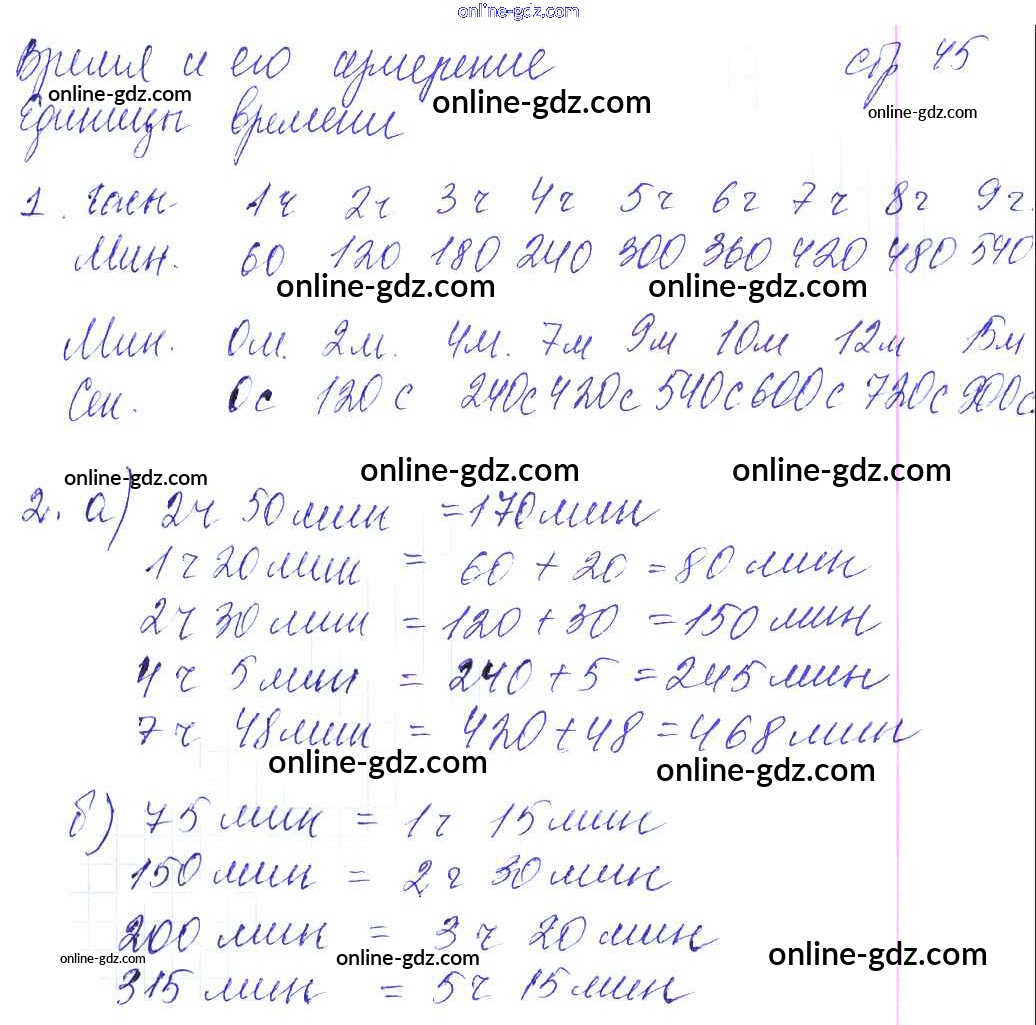 online-gdz.com
Время и его измерение стр 45
online-gdz.com online-gdz.com online-gdz.com
Единицы времени
1. часы 1ч 2ч 3ч 4ч 5ч 6ч 7ч 8ч 9ч
Мин. 60 120 180 240 300 360 420 480 540
online-gdz.com online-gdz.com
Мин. 0м. 2м. 4м. 7м 9м 10м 12м 15м
Сек. 0с 120с 240с 420с 540с 600с 720с 900с
online-gdz.com online-gdz.com online-gdz.com
2. а) 2ч 50мин = 170мин
1ч 20мин = 60 + 20 = 80 мин
2ч 30мин = 120 + 30 = 150мин
4ч 5мин = 240 + 5 = 245мин
7ч 48мин = 420 + 48 = 468мин
online-gdz.com online-gdz.com
б) 75мин = 1ч 15мин
150мин = 2ч 30мин
200 мин = 3ч 20мин
online-gdz.com online-gdz.com online-gdz.com
315мин = 5ч 15мин